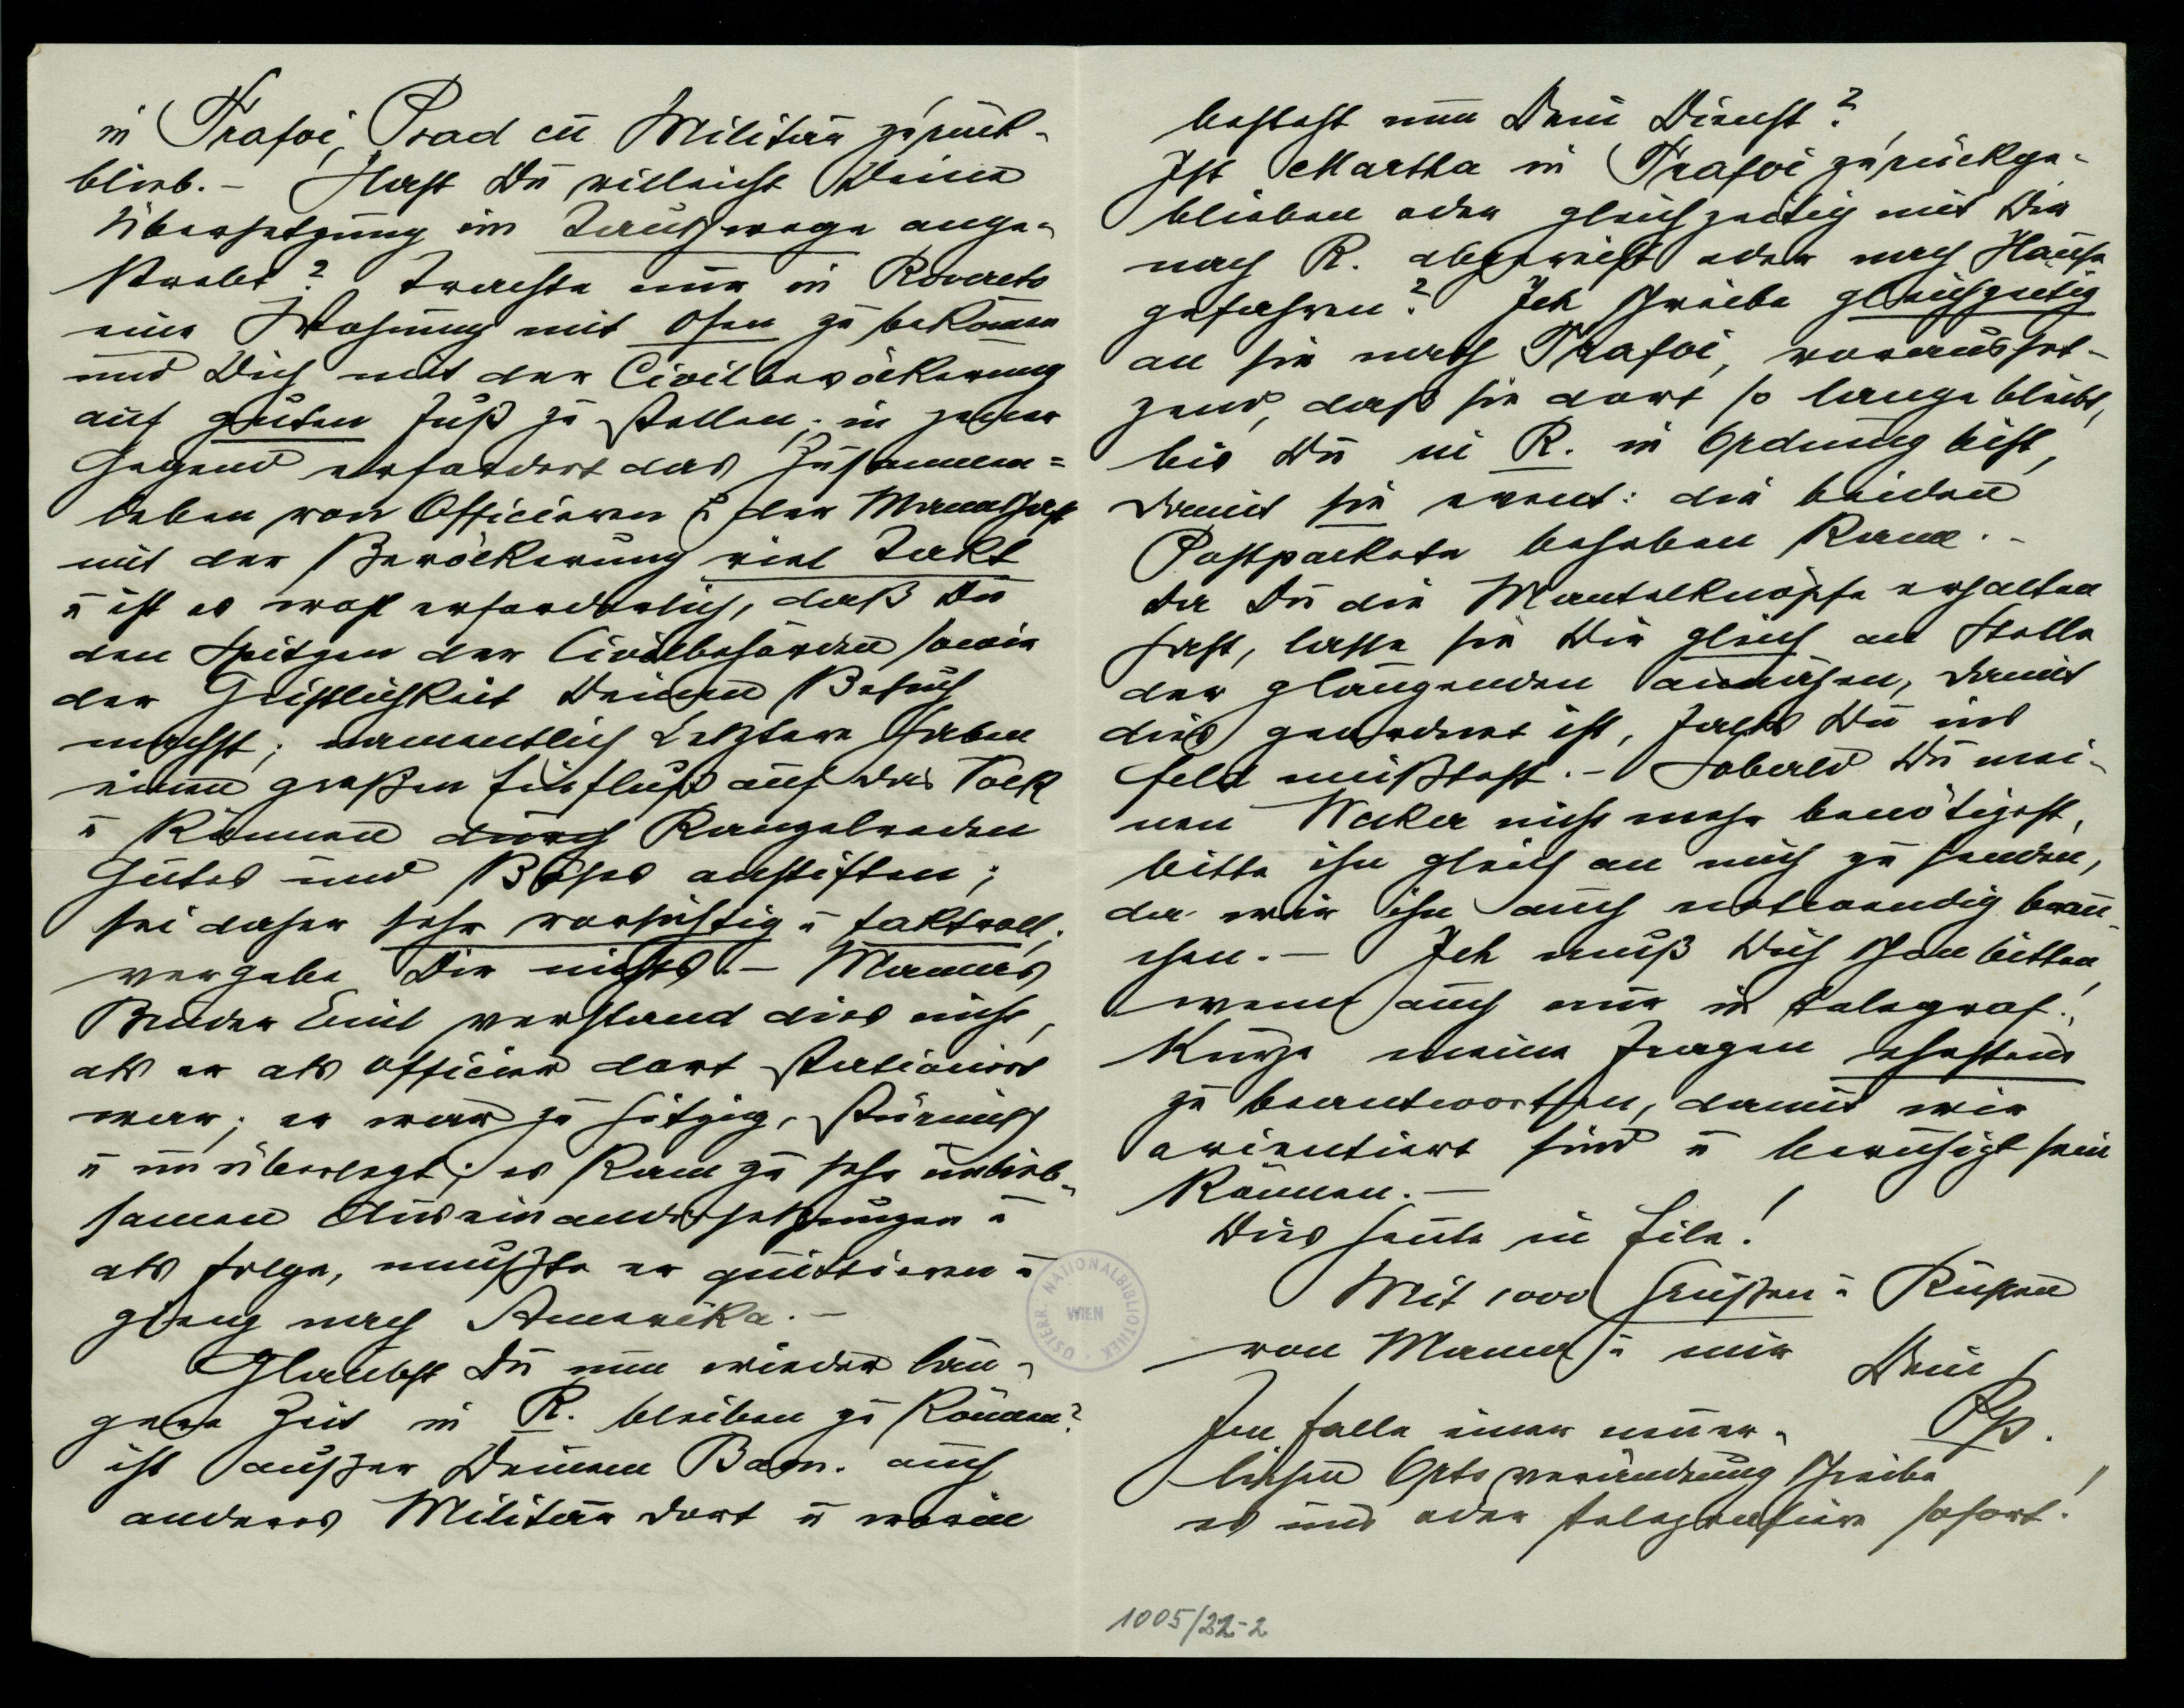 in Trafoi, Prad an Militär zurück-
blieb. – Hast Du villeicht Deine
Übersetzung im Tauschwege ange-
strebt? Trachte nur in Rovereto
eine Wohnung mit Ofen zu bekommen
und Dich mit der Civilbevölkerung
auf guten Fuß zu stellen; in jener
Gegend erfordert das Zusammen=
leben von Officieren & der Mannschaft
mit der Bevölkerung viel Takt
u ist es wohl erforderlich, daß Du
den Spitzen der Civilbehörden sowie
der Geistlichkeit Deinen Besuch
machst; namentlich Letztere haben
einen großen Einfluß auf das Volk
u können durch Kanzelreden
Gutes und Böses anstiften;
sei daher sehr vorsichtig u taktvoll;
vergebe Dir nichts. – Mama's
Bruder Emil verstand dies nicht,
als er als Officier dort stationirt
war; er war zu hitzig, stürmisch
u unüberlegt; es kam zu sehr unlieb-
samen Auseinandersetzungen u
als Folge, mußte er quittieren u
gieng nach Amerika. –
Glaubst Du nun wieder län-
gere Zeit in R. bleiben zu können?
ist außer Deinem Baon. auch
anderes Militär dort u worin
besteht nun Dein Dienst?
Ist Martha in Trafoi zurückge-
blieben oder gleichzeitig mit Dir
nach R. abgereist oder nach Hause
gefahren? Ich schreibe gleichzeitig
an sie nach Trafoi, voraussset-
zend, daß sie dort so lange bleibt,
bis Du in R. in Ordnung bist,
damit sie event: die beiden
Postpackete beheben kann. –
Da Du die Mantelknöpfe erhalten
hast, lasse sie Dir gleich an Stelle
der glänzenden annähen, damit
dies geordnet ist, falls Du ins
Feld müßtest. – Sobald Du mei-
nen Wecker nicht mehr benötigest,
bitte ihn gleich an mich zu senden,
da wir ihn auch notwendig brau-
chen. – Ich muß Dich schon bitten,
wenn auch nur in telegraf.
Kürze meine Fragen ehestens
zu beantworten, damit wir
orientiert sind u beruhigt sein
können. –
Dies heute in Eile!
Mit 1000 Grüßen u Küssen
von Mama u mir Dein
Pp.
Im Falle einer neuer-
lichen Ortsveränderung schreibe
es uns oder telegrafiere sofort!
ÖSTERR. NATIONALBIBLIOTHEK
WIEN
1005/22-2